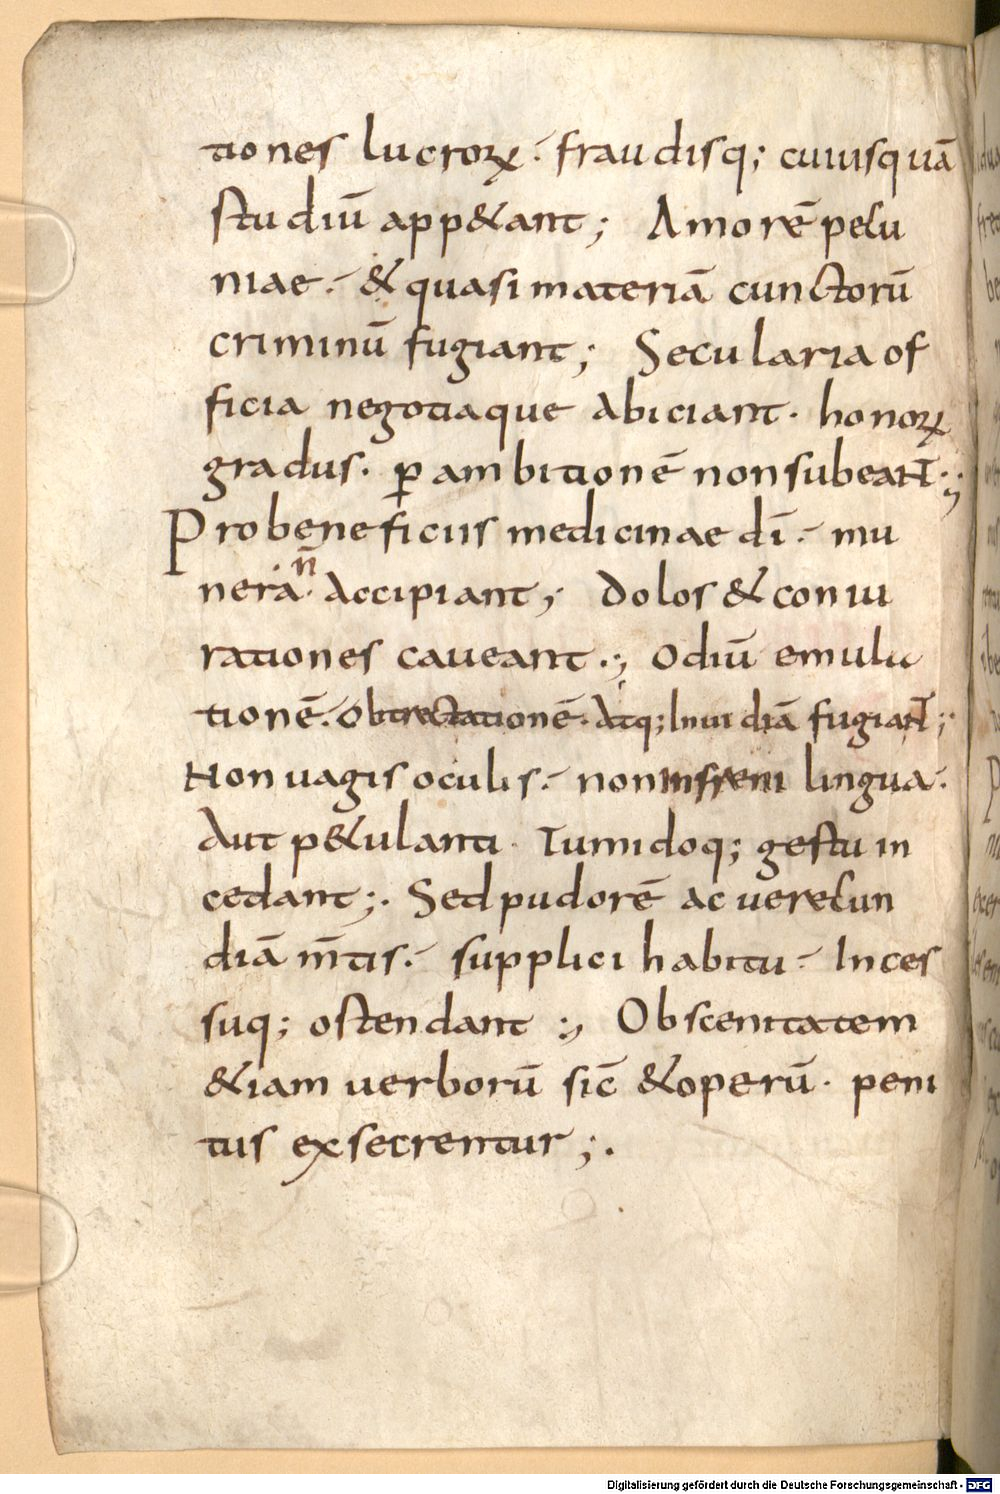 tiones lucroꝝ· fraudisq; cuiusquā
studiū app&ant; Amorē pecu
niae· & quasi materiā cunctorū
criminū fugiant; Secularia of
ficia negotiaque abiciant· honoꝝ
gradus· ꝑ ambitionē non subeant·;
Pro beneficiis medicinae dī· mu
nera n̄ accipiant; Dolos & coniu
rationes caveant·; Odiū emula
tionē· obtrectationē· Atq; Inuidiā fugiant;·
Non uagis oculis· non infreni lingua·
Aut p&ulanti· Tumidoq; gestu in
cedant;· Sed pudorē ac verecun
diā m̄tis· supplici habitu· Inces
suq; ostendant :; Obscenitatem
&iam uerborū sic̄ & operū· peni
tus exsecrentur;·
Digitalisierung gefördert durch die Deutsche Forschungsgemeinschaft - DFG